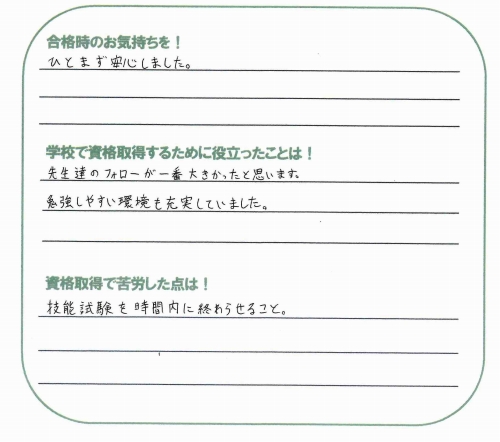 合格時のお気持ちを！
ひとまず安心しました。
学校で資格取得するために役立ったことは！
先生達のフォローが一番大きかったと思います。
勉強しやすい環境も充実していました。
資格取得で苦労した点は！
技能試験を時間内に終わらせること。